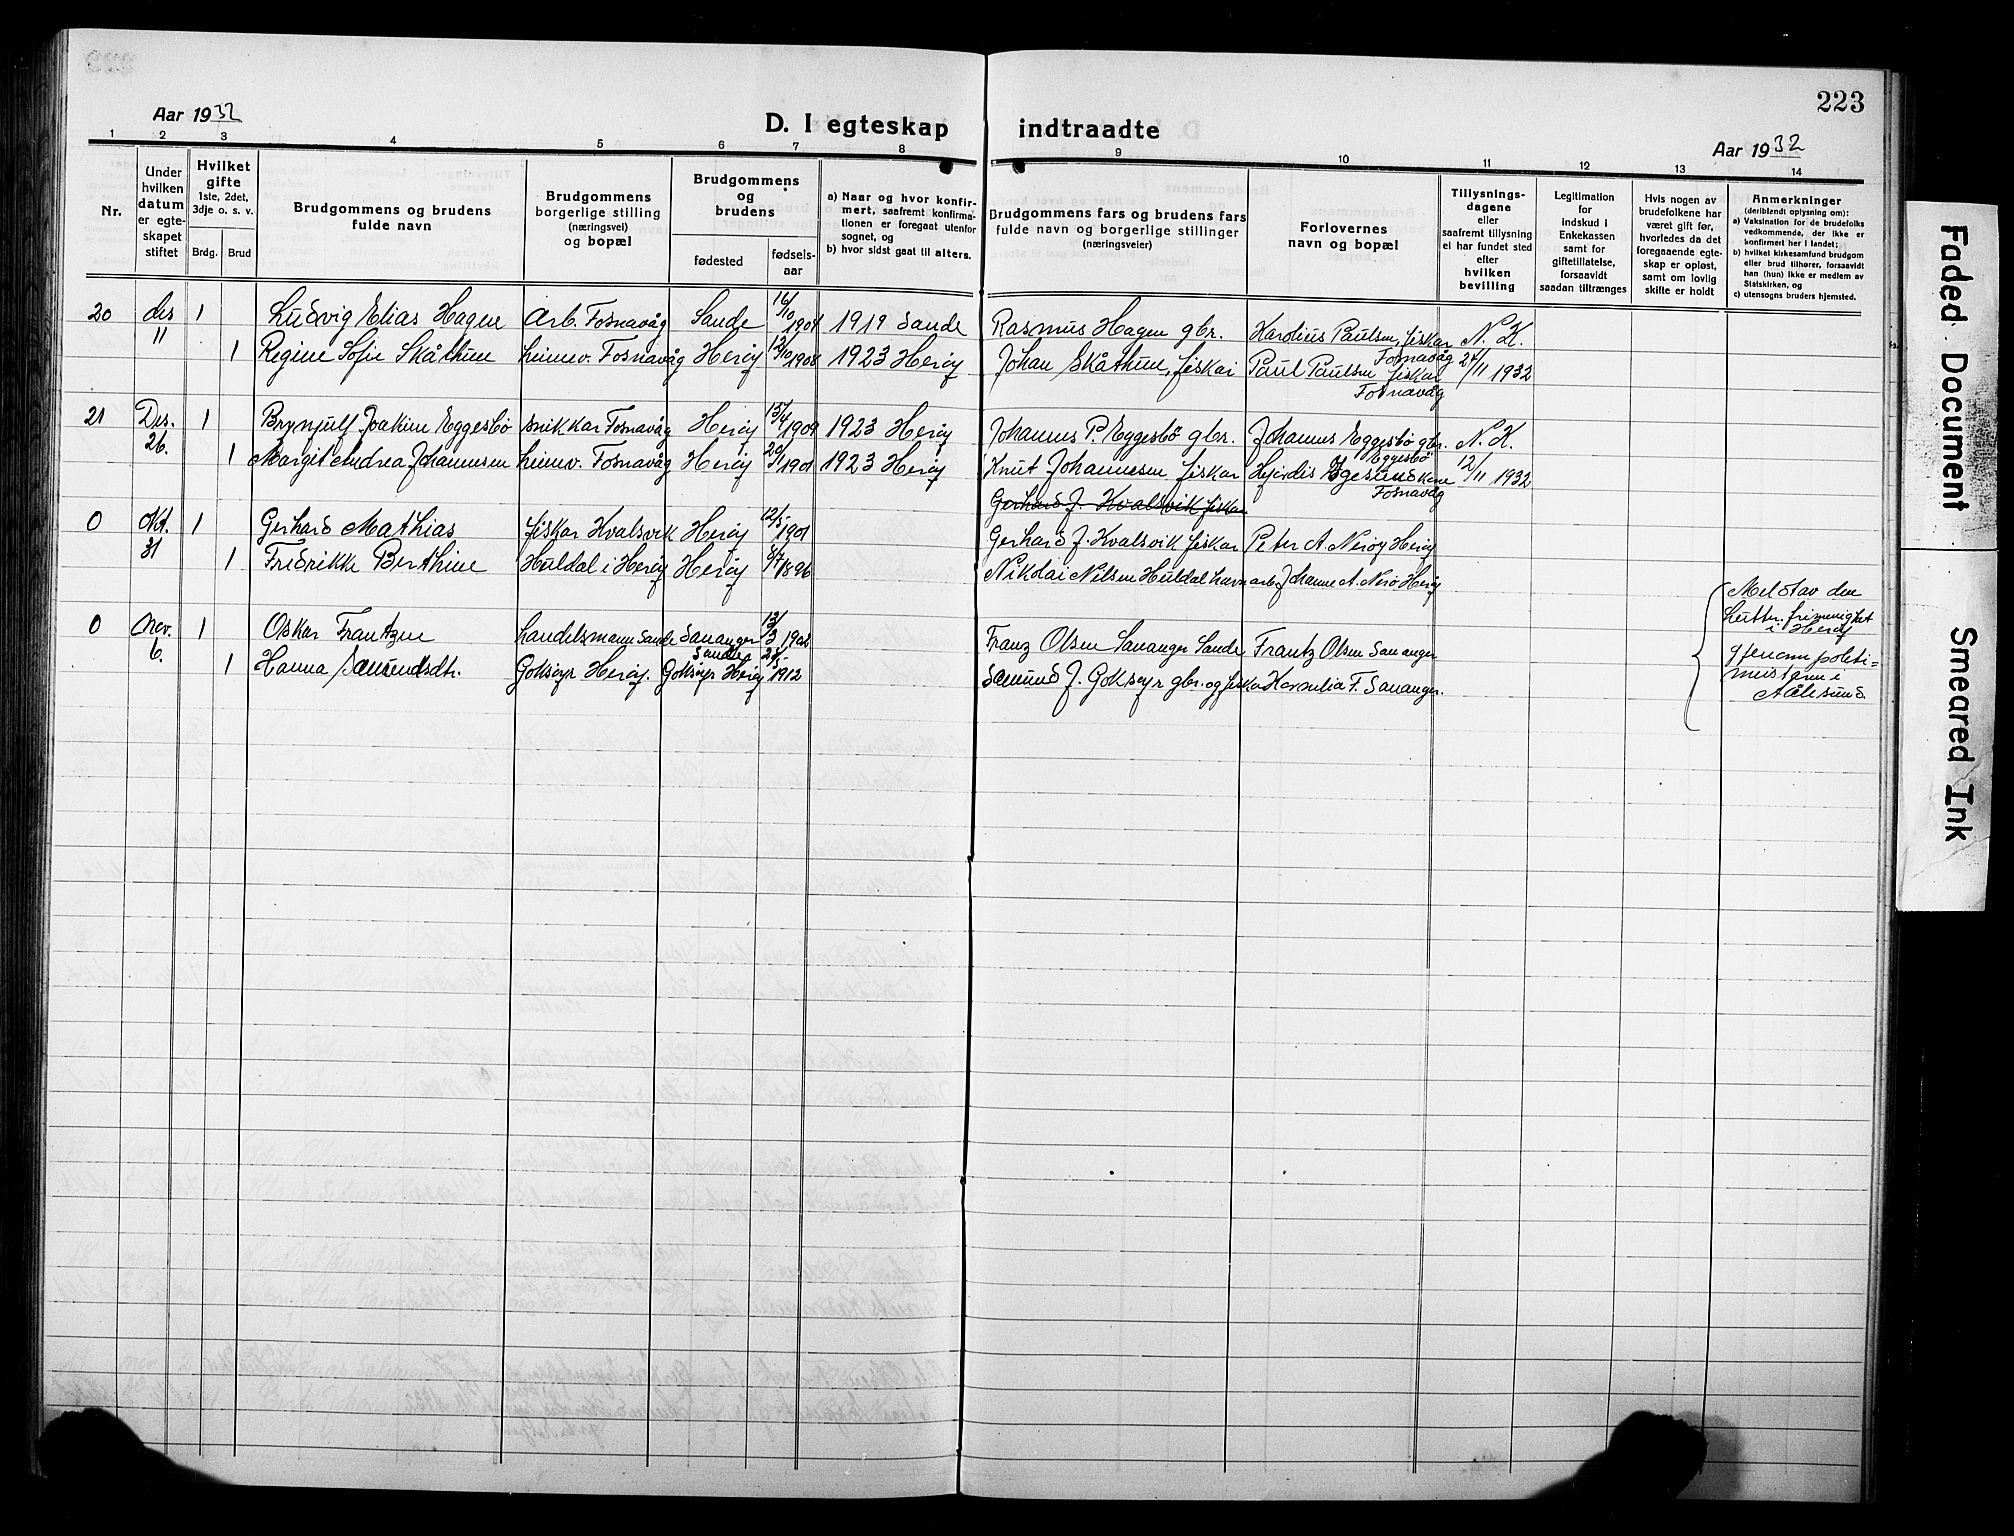 223
Aar 1932
D. I egteskap indtraadte
Aar 1932
1 2 3 4 5 6 7 8 9 10 11 12 13 14
Nr.
Under hvilken datum er egteskapet stiftet
Hvilket gifte 1ste, 2det, 3dje o. s. v.
Brdg. Brud
Brudgommens og brudens fulde navn
Brudgommens borgerlige stilling (næringsvei) og bopæl
Brudgommens og brudens
fødested
fødselsaar
a) Naar og hvor konfirmert, saafremt konfirmationen er foregaat utenfor sognet, og
b) hvor sidst gaat til alters.
Brudgommens fars og brudens fars fulde navn og borgerlige stillinger (næringsveier)
Forlovernes navn og bopæl
Tillysningsdagene eller saafremt tillysning ei har fundet sted efter hvilken bevilling
Legitimation for indskud i Enkekassen samt for giftetillatelse, forsaavidt saadan tiltrænges
Hvis nogen av brudefolkene har været gift før, hvorledes da det foregaaende egteskap er opløst, samt om lovlig skifte er holdt
Anmerkninger (deriblandt oplysning om):
a) Vaksination for de brudefolks vedkommende, der ikke er konfirmert her i landet;
b) hvilket kirkesamfund brudgom eller brud tilhører, forsaavidt han (hun) ikke er medlem av Statskirken, og
c) utensogns bruders hjemsted.
20 des 11 1 Ludvig Elias Hagen Arb. Fosnavåg Sande 16/10 1904 1919 Sande Rasmus Hagen gbr. Karolius Paulsen, fiskar Fosnavåg N. K.
1 Regine Sofie Skåthun heimev. Fosnavåg Herøy 12/10 1908 1923 Herøy Johan Skåthun, fiskar Paul Paulsen fiskar Fosnavåg 27/11 1932
21 Des. 26. 1 Brynjulf Joakim Eggesbö snikkar Fosnavåg Herøy 15/4 1909 1923 Herøy Johannes P. Eggesbö gbr. Johannes Eggesbö gbr. Eggesbö N. K.
1 Margit Andrea Johannesen heimev. Fosnavåg Herøy 1923 Herøy Knut Johannesen fiskar Fosnavåg 12/11 1932
Gerhard J. Kvalsvik fiskar
0 Okt. 31 1 Gerhard Mathias fiskar Kvalsvik Herøy 12/5 1901 Gerhard J. Kvalsvik fiskar Peter A Nerøy Herøy
1 Fredrikke Berthine Huldal i Herøy Herøy 8/7 1896 Nikolai Nilsen Huldal havnarb. Johanne A. Nerø Herøy
0 Nov. 6. 1 Oskar Frantzen handelsmann Sande Sananger Sande 1902 Franz Olsen Sananger Sande Frantz Olsen Sananger
1 Hanna Samundsdtr. Goksøyr Herøy. Goksøyr Herøy 1912 Samund J. Goksøyr gbr. og fiskar Kornelia F. Sananger.
Meldt av den
Lutter. frimenighet
i Herøy
gjenom politi=
meisteren i
Ålesund.
Faded Document
Smeared Ink